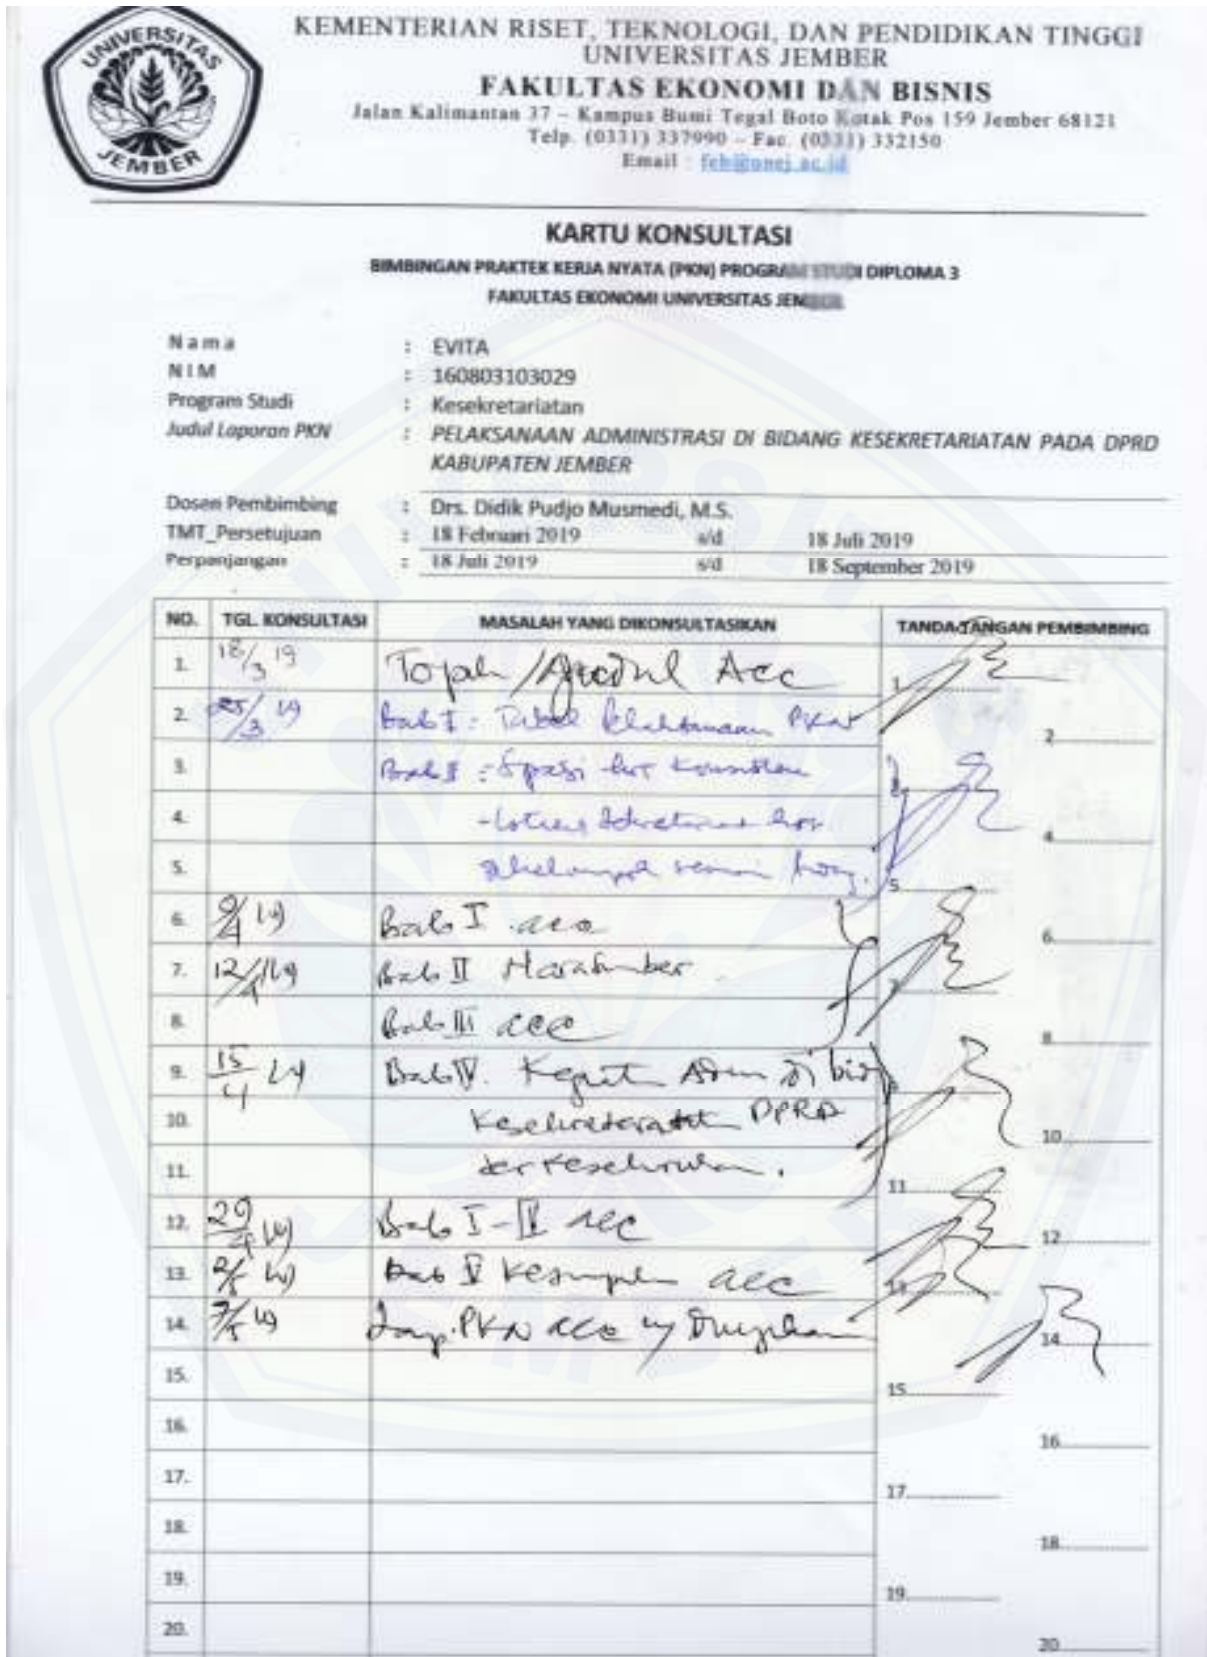 UNIVERSITAS
JEMBER
KEMENTERIAN RISET, TEKNOLOGI, DAN PENDIDIKAN TINGGI
UNIVERSITAS JEMBER
FAKULTAS EKONOMI DAN BISNIS
Jalan Kalimantan 37 – Kampus Bumi Tegal Boto Kotak Pos 159 Jember 68121
Telp. (0331) 337990 – Fac. (0331) 332150
Email : feb@unej.ac.id
KARTU KONSULTASI
BIMBINGAN PRAKTEK KERJA NYATA (PKN) PROGRAM STUDI DIPLOMA 3
FAKULTAS EKONOMI UNIVERSITAS JEMBER
Nama : EVITA
NIM : 160803103029
Program Studi : Kesekretariatan
Judul Laporan PKN : PELAKSANAAN ADMINISTRASI DI BIDANG KESEKRETARIATAN PADA DPRD
KABUPATEN JEMBER
Dosen Pembimbing : Drs. Didik Pudjo Musmedi, M.S.
TMT_Persetujuan : 18 Februari 2019 s/d 18 Juli 2019
Perpanjangan : 18 Juli 2019 s/d 18 September 2019
NO. TGL. KONSULTASI MASALAH YANG DIKONSULTASIKAN TANDA TANGAN PEMBIMBING
1. 18/3 19 Acc 1
2. 25/3 19 Bab I : Tabel PKN 2
3. Bab II :
4. 4
5. 5
6. 9/4 19 Bab I acc 6
7. 12/4 19 Bab II 7
8. Bab III acc 8
9. 15/4 19 Bab IV. di
10. DPRD 10
11. 11
12. 29/4 19 Bab I - IV acc 12
13. 2/5 19 Bab V acc 13
14. 7/5 19 Lap. PKN acc 14
15. 15
16. 16
17. 17
18. 18
19. 19
20. 20